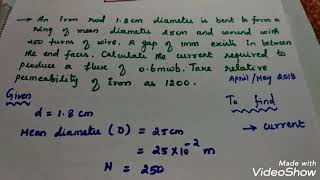 → An iron rod 1.8cm diameter is bent to form a
ring of mean diameter 25cm and wound with
250 turns of wire. A gap of 1mm exists in between
the end faces. Calculate the current required to
produce a flux of 0.6mwb. Take relative
permeability of iron as 1200.
April/May 2018
Given
To find
d = 1.8 cm
→ current
Mean diameter (D) = 25cm
= 25×10⁻² m
N = 250
Made with
VideoShow